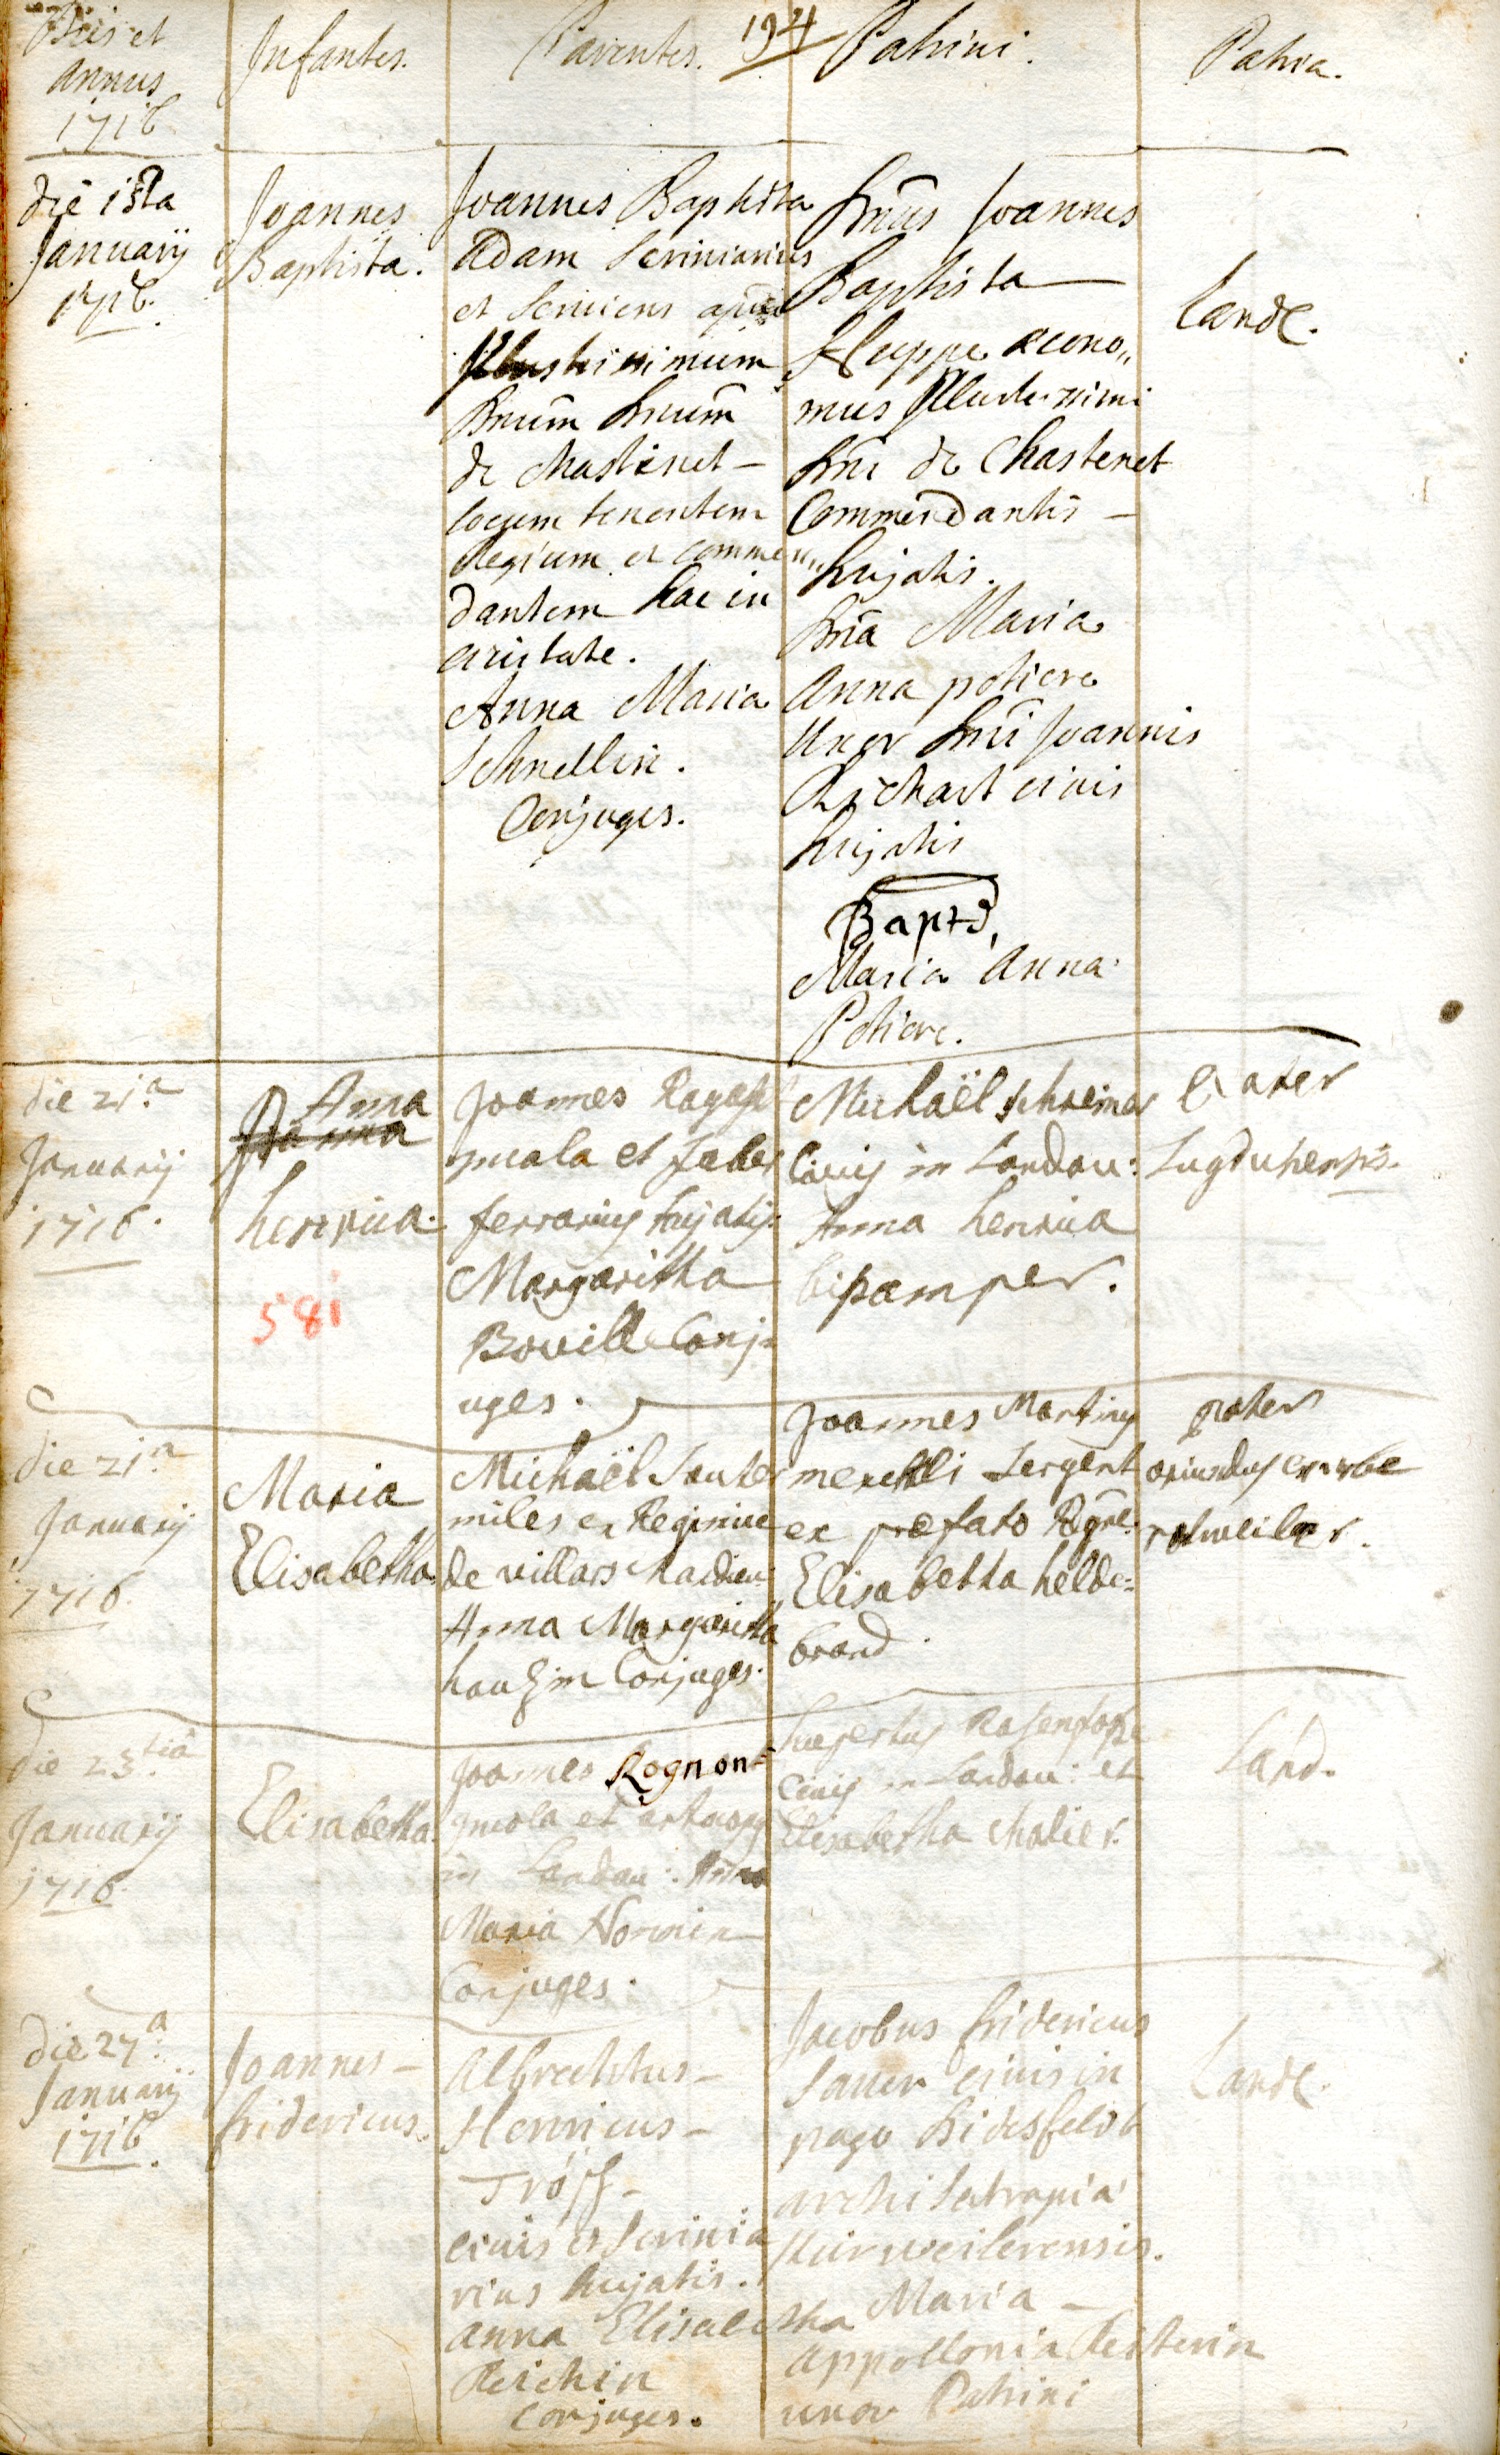 Dies et
annus
1716
Infantes.
Parentes.
194
Patrini.
Patria.
die 15ta
Januarij
1716.
Joannes
Baptista.
Joannes Baptista
Adam Scriniarius
et Serviens apud
Illustrissimum
Dnum Dnum
de Chastenet -
locum tenentem
Regium et commen„
dantem hac in
civitate.
Anna Maria
Schnellin.
Conjuges.
Dnus Joannes
Baptista
Huppe œcono„
mus Illustrissimi
Dni de Chastenet
Commendantis -
hujatis.
Dna Maria
Anna potiere
Uxor Dni Joannis
Richart civis
hujatis
Bapt
Maria Anna
Potiere.
Land.
die 21.a
Januarij
1716.
Anna
henrica.
581
Joannes
incola et faber
ferrarius hujatis.
Margaritha
Bouille Conj=
uges.
Michaël schreiner
Civis in Landau:
Anna henrica
bipamper.
Pater
Lugdunensis.
die 21.a
Januarij
1716.
Maria
Elisabetha.
Michaël Sauter
miles ex Regimine
de villars
Anna Margaritha
Conjuges.
Joannes Martinus
Sergent
ex præfato Regne:
Elisabetha helde=
brand.
pater
oriundus ex urbe
rotweiler.
die 23.tia
Januarij
1716.
Elisabetha.
Joannes Rognont
incola et
in Landau: Anna
Maria
Conjuges.
Civis in Landau: et
Elisabetha
Land.
die 27.a
Januarij
1716.
Joannes -
fridericus.
Albrechtus -
Henricus -
Tröff -
civis et Scrinia
rius hujatis.
Anna Elisabetha
Reichin
Conjuges.
Jacobus fridericus
Sauer civis in
pago
archisatrapia
Kirweilerensis.
Maria -
Appollonia
uxor Patrini
Land.